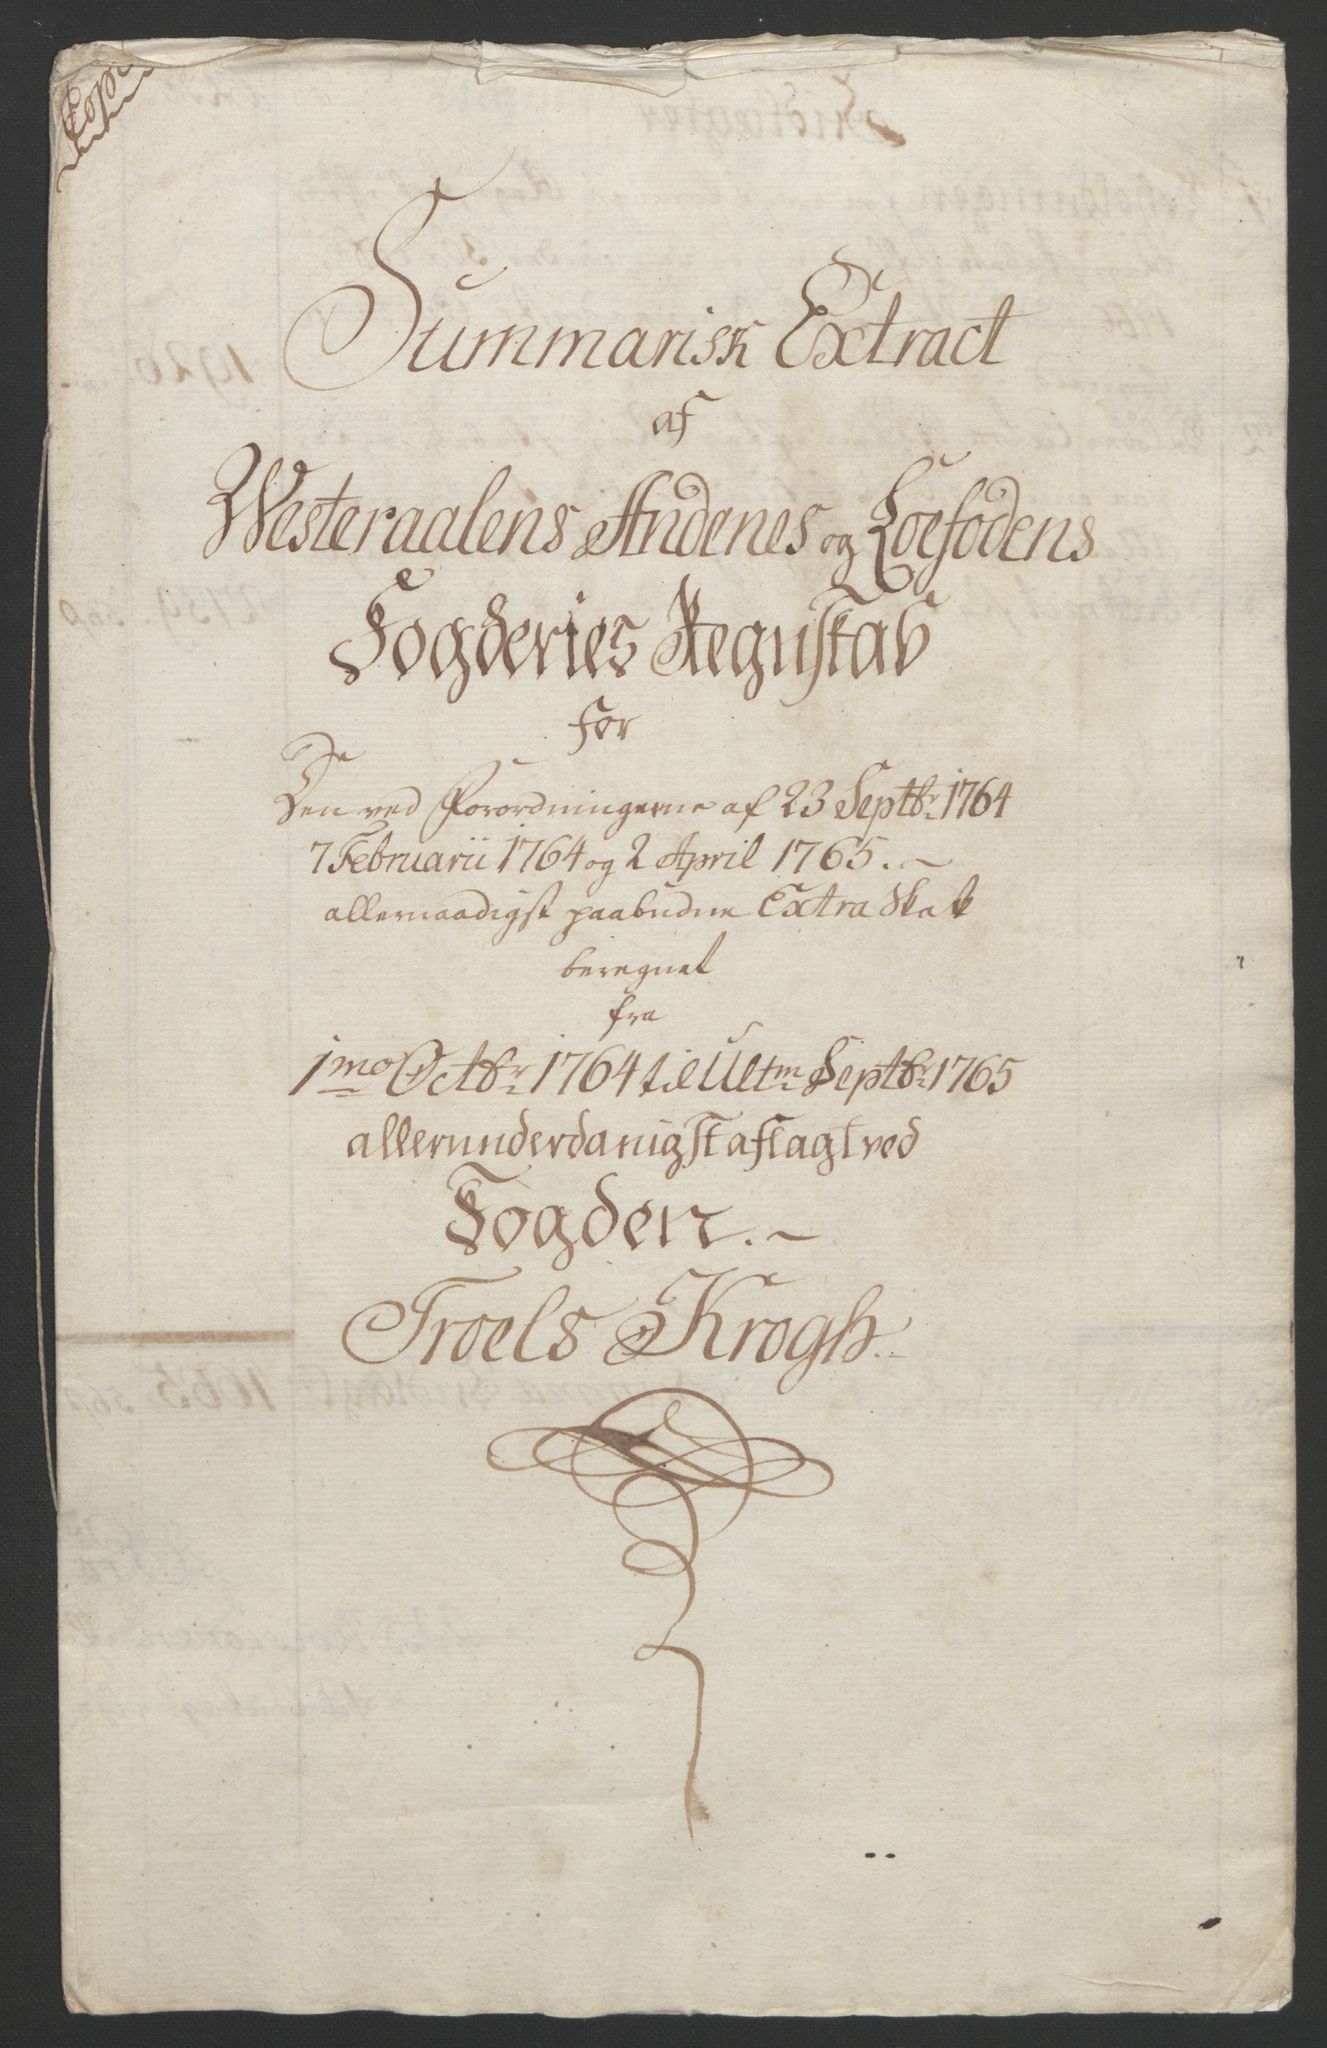 Copie
Summarisk Extract
af
Westeraalens Andenes og Loefodens
Fogderies Regnskab
for
Den ved Forordningerne af 23 Septbr 1764
7 Februarii 1764 og 2 April 1765.
allernaadigst paabudne Extra Skatt
beregnet
fra
1mo Octbr 1764 til Ultm Septbr 1765
allerunderdanigst aflagt ved
Fogden.
Troels Krogh.